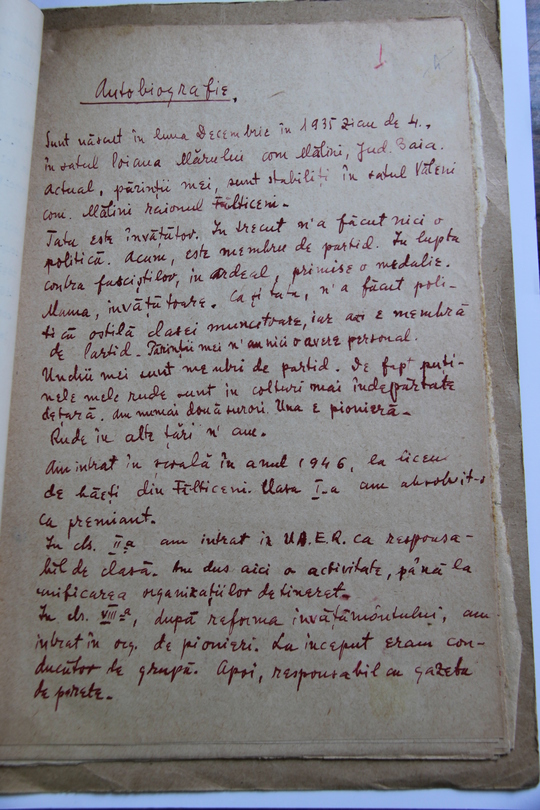 1
Autobiografie.
Sunt născut în luna Decembrie în 1935 ziua de 4.,
în satul Poiana Mărului com Mălini, Jud. Baia.
Actual, părinții mei, sunt stabiliți în satul Văleni
com. Mălini raionul Fălticeni.-
Tata este învățător. În trecut n'a făcut nici o
politică. Acum, este membru de partid. În lupta
contra fasciștilor, în Ardeal, primise o medalie.
Mama, învățătoare. Ca și tata, n'a făcut poli-
tică ostilă clasei muncitoare, iar azi e membră
de Partid. Părinții mei n'au nici o avere personal.
Unchii mei sunt membri de partid. De fapt puți-
nele mele rude sunt în colțuri mai îndepărtate
de țară. Am numai două surori. Una e pionieră.-
Rude în alte țări n'am.
Am intrat în școală în anul 1946, la liceu
de băeți din Fălticeni. Clasa I-a am absolvit-o
ca premiant.
In cls. II-a am intrat in U.A.E.R. ca responsa-
bil de clasă. Am dus aici o activitate, până la
unificarea organizațiilor de tineret.-
In cls. VIII-a, după reforma învățământului, am
intrat în org. de pionieri. La început eram con-
ducător de grupă. Apoi, responsabil cu gazeta
de perete.-